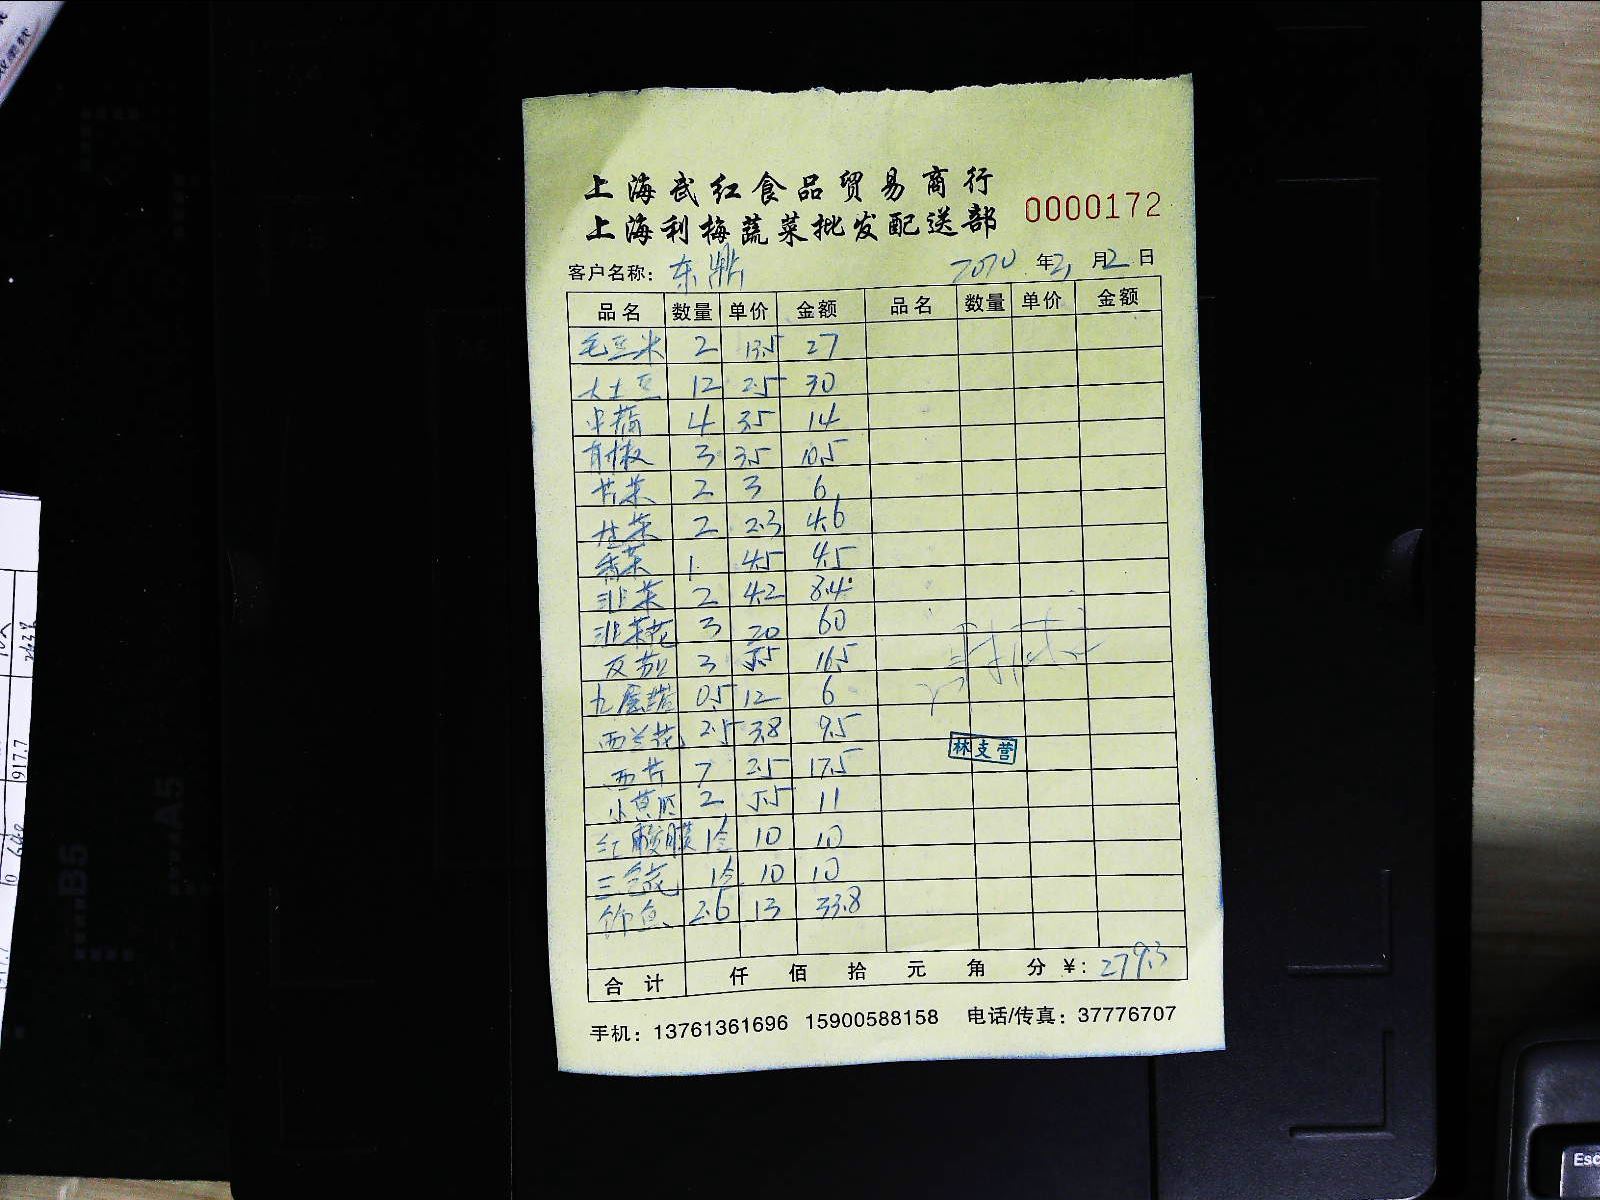 上海武红食品贸易商行
上海利梅蔬菜批发配送部
0000172
客户名称: 东鼎 2020年2月2日
品名 数量 单价 金额 品名 数量 单价 金额
毛豆米 2 13.5 27
大土豆 12 2.5 30
4 3.5 14
青椒 3 3.5 10.5
2 3 6
生菜 2 2.3 4.6
香菜 1 4.5 4.5
韭菜 2 4.2 8.4
韭菜花 3 20 60
3 5.5 16.5
九层塔 0.5 12 6
西兰花 2.5 3.8 9.5
西芹 7 2.5 17.5
小黄瓜 2 5.5 11
红酸膜 1盒 10 10
三色花 1盒 10 10
2.6 13 33.8
林支营
合计 仟 佰 拾 元 角 分 ¥: 279.3
手机: 13761361696 15900588158 电话/传真: 37776707
B5
A5
917.7
Esc